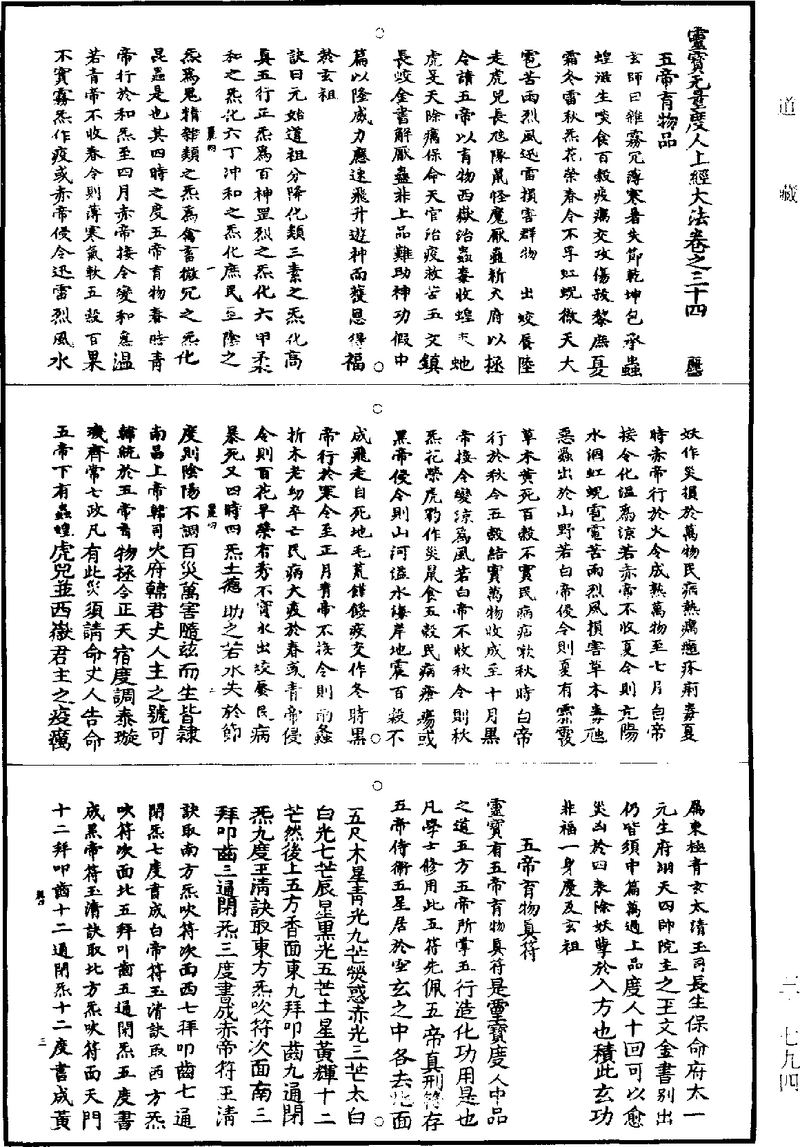 道藏
三·七九四
靈寶无量度人上經大法卷之三十四
五帝育物品
玄師曰雜霧冗薄寒暑失節乾坤包承蟲
蝗滋生啖食百穀疫癘交攻傷殘黎庶夏
霜冬雷秋炁花榮春令不孚虹蜺微天大
雹苦雨烈風迅雷損害群物 出蛟屬陸
走虎兕長虺隊鼠怪魔厭蠱斬大府以拯
令請五帝以育物西嶽治蟲毒收蝗 虵
虎旻天除癘保命天官治疫救苦五文鎮
長蛟金書解厭蠱非上品難助神功假中
篇以隆威力應速飛升遊神而獲恩得福
於玄祖
訣曰元始道祖分降化類三素之炁化高
真五行正炁為百神罡烈之炁化六甲柔
和之炁化六丁冲和之炁化庶民五陰之
炁為鬼精雜類之炁為禽畜微冗之炁化
昆蟲是也其四時之度五帝育物春時青
帝行於和炁至四月赤帝接令變和為溫
若青帝不收春令則薄寒氣軟五穀百果
不實霧炁作疫或赤帝侵令迅雷烈風水
妖作災損於萬物民病熱癘瘧疾痢毒夏
時赤帝行於火令成熟萬物至七月白帝
接令化溫為涼若赤帝不收夏令則亢陽
水涸虹蜺雹雹苦雨烈風損害草木毒虺
惡蟲出於山野若白帝侵令則夏有霖霪
草木黃死百穀不實民病瘧咳秋時白帝
行於秋令五穀結實萬物收成至十月黑
帝接令變涼為風若白帝不收秋令則秋
炁花榮虎豹作災鼠食五穀民病瘠瘍或
黑帝侵令則山河溢水海岸地震百穀不
成飛走自死地毛荒饉餒疫交作冬時黑
帝行於寒令至正月青帝不接令則雨螽
折木老幼卒亡民病大疫於春或青帝侵
令則百花早榮有秀不實水出蛟屬民病
暴死又四時四炁土德 助之若水失於節
度則陰陽不調百災萬害隨茲而生皆隸
南昌上帝轄司火府轄君丈人主之號可
轄統於五帝育物拯令正天宿度調泰璇
璣齊常七政凡有此災須請命丈人告命
五帝下有蟲蝗虎兕並西嶽君主之疫癘
屬東極青玄太清玉司長生保命府太一
元生府翊天四帥院主之王文金書別出
仍皆須中篇萬遍上品度人十回可以愈
災凶於四表除妖孽於八方也積此玄功
非福一身慶及玄祖
五帝育物真符
靈寶有五帝育物真符是靈寶度人中品
之道五方五帝所掌五行造化功用是也
凡學士修用此五符先佩五帝真刑符存
五帝侍衛五星居於空玄之中各去北面
五尺木星青光九芒熒惑赤光三芒太白
白光七芒辰星黑光五芒土星黃輝十二
芒然後上五方香面東九拜叩齒九通閉
炁九度玉清訣取東方炁吹符次面南三
拜叩齒三通閉炁三度書成赤帝符玉清
訣取南方炁吹符次面西七拜叩齒七通
閉炁七度書成白帝符玉清訣取西方炁
吹符次面北五拜叩齒五通閉炁五度書
成黑帝符玉清訣取北方炁吹符面天門
十二拜叩齒十二通閉炁十二度書成黃